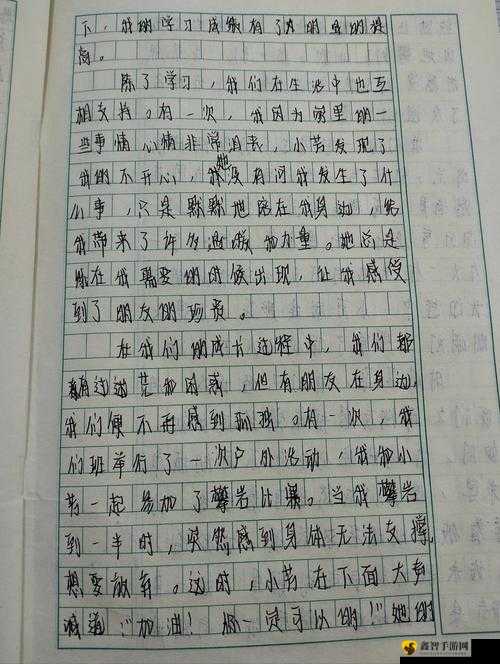 下，我的学习成绩有了为明显的提
高。
除了学习，我们在生活中也互
相支持。有一次，我因为家里的一
些事情心情非常沮丧，小若发现了
我的不开心，她没有问我发生了什
么事，只是默默地陪在我身边，给
我带来了许多温暖和力量。她总是
能在我需要的时候出现，让我感受
到了朋友的珍贵。
在我们的成长过程中，我们都
有过迷茫和困惑，但有朋友在身边，
我们便不再感到孤独。有一次，我
们班举行了一次户外活动，我和小
若一起参加了攀岩比赛。当我攀岩
到一半时，突然感到身体无法支撑，
想要放弃。这时，小若在下面大声
喊道："加油！你一定可以的！"她的
鑫智手游网